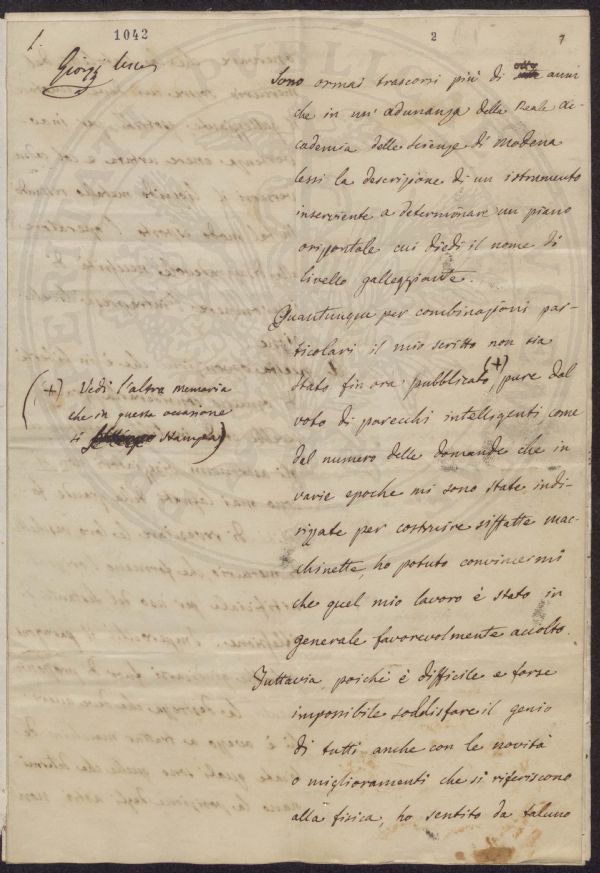 1.
1042
2
7
Giorgj
Sono ormai trascorsi più di otto anni
che in un' adunanza della Reale Ac-
cademia delle Scienze di Modena
lessi la descrizione di un istrumento
inserviente a determinare un piano
orizzontale cui diedi il nome di
livello galleggiante.
Quantunque per combinazioni par-
ticolari il mio scritto non sia
stato fin ora pubblicato, (+) pure dal
voto di parecchi intelligenti come
dal numero delle domande che in
varie epoche mi sono state indi-
rizzate per costruire siffatte mac-
chinette, ho potuto convincermi
che quel mio lavoro è stato in
generale favorevolmente accolto.
Tuttavia poichè è difficile e forse
impossibile soddisfare il genio
di tutti anche con le novità
o miglioramenti che si riferiscono
alla fisica, ho sentito da taluno
(+) Vedi l'altra memoria
che in questa occasione
si stampa)